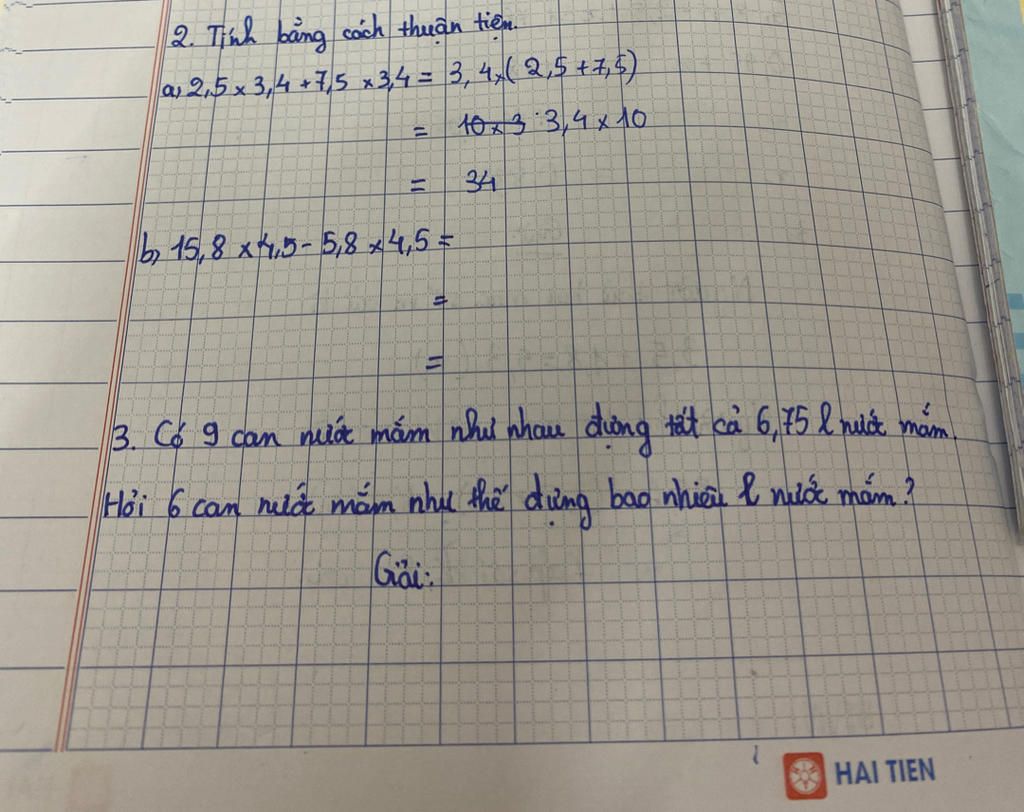 2. Tính bằng cách thuận tiện.
a, 2,5 x 3,4 + 7,5 x 3,4 = 3,4 x ( 2,5 + 7,5 )
= 10 x 3 3,4 x 10
= 34
b, 15,8 x 4,5 - 5,8 x 4,5 =
=
=
3. Có 9 can nước mắm như nhau đựng tất cả 6,75 l nước mắm.
Hỏi 6 can nước mắm như thế đựng bao nhiêu l nước mắm?
Giải:
HAI TIEN